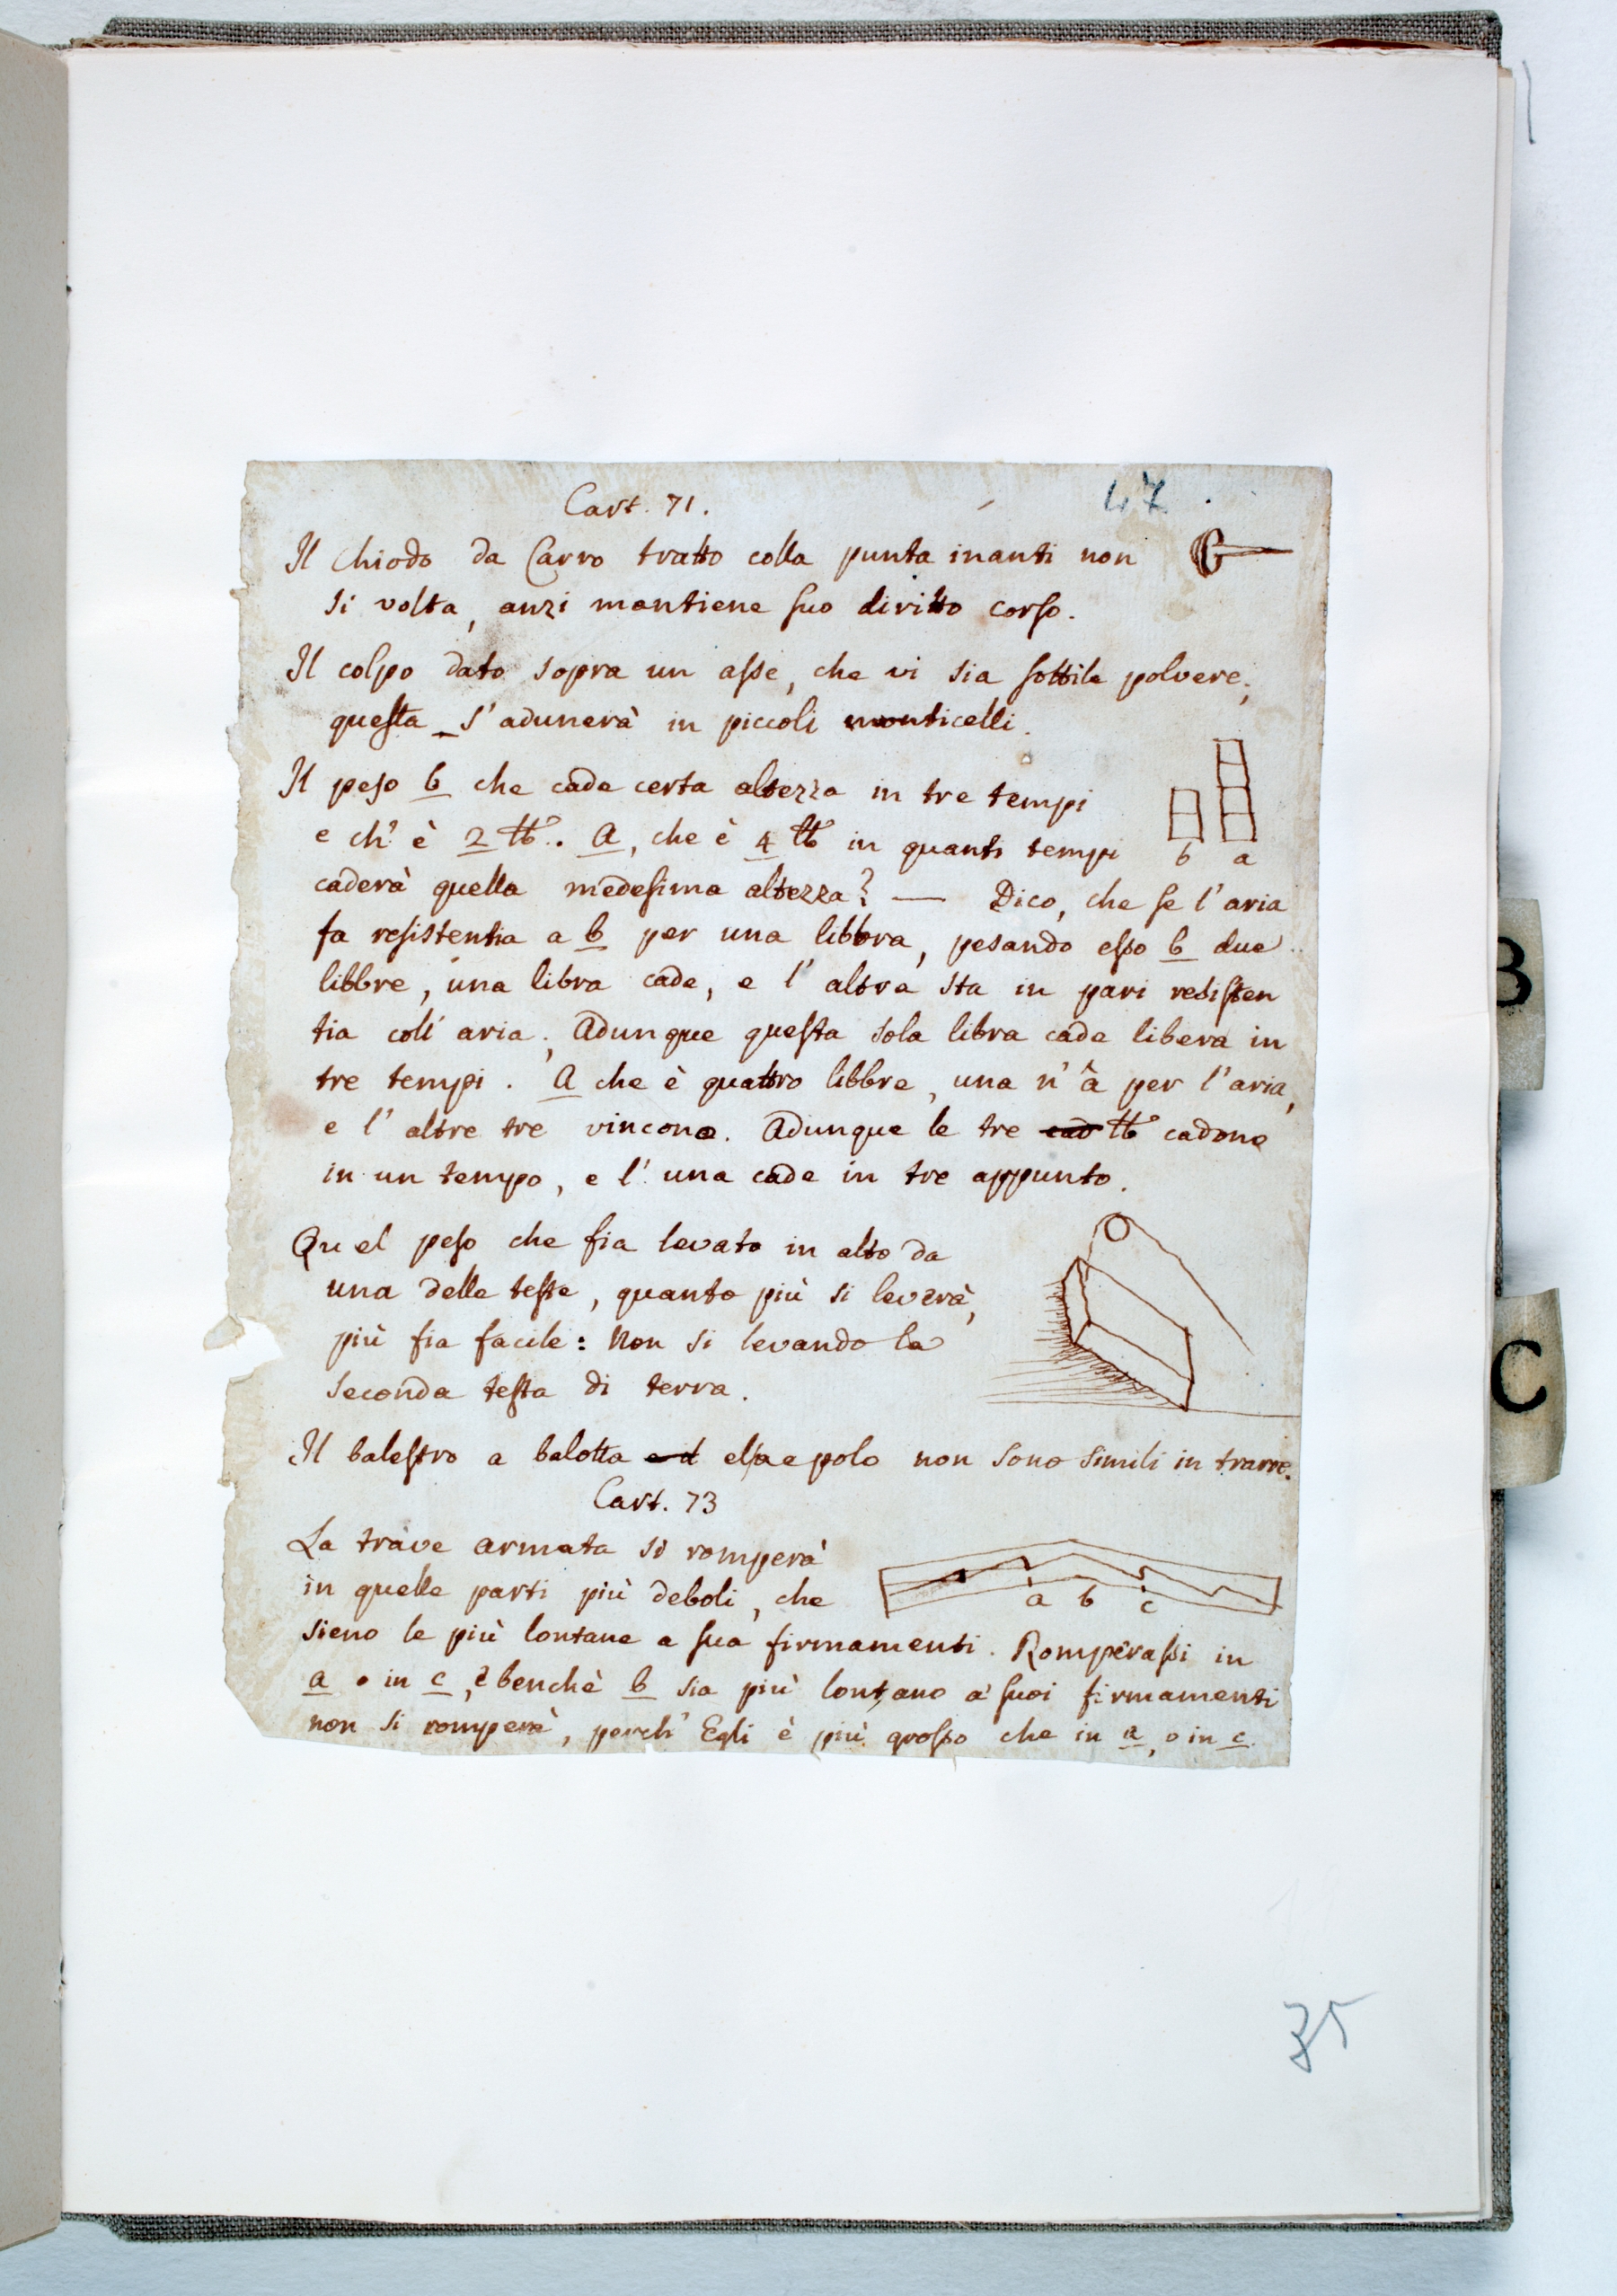 Cart. 71.
47
Il Chiodo da Carro tratto colla punta inanti non
si volta, anzi mantiene suo diritto corso.
Il colpo dato sopra un asse, che vi sia sottile polvere,
questa s'adunerà in piccoli monticelli.
Il peso b che cade certa altezza in tre tempi
e ch'è 2 ℔. a, che è 4 ℔ in quanti tempi
b a
caderà quella medesima altezza? — Dico, che se l'aria
fa resistentia a b per una libbra, pesando esso b due
libbre, una libra cade, e l'altra sta in pari resisten
tia coll'aria; Adunque questa sola libra cade libera in
tre tempi. A che è quattro libbre, una n'à per l'aria,
e l'altre tre vincono. Adunque le tre cad ℔ cadono
in un tempo, e l'una cade in tre appunto.
Quel peso che fia levato in alto da
una delle teste, quanto più si leverà,
più fia facile: Non si levando la
seconda testa di terra.
Il balestro a balotta ed
non sono simili in trarre.
Cart. 73
La trave armata si romperà
in quelle parti più deboli, che
a b c
sieno le più lontane a sua firmamenti. Romperassi in
a o in c, e benchè b sia più lontano a' suoi firmamenti
non si romperà, perch'Egli è più grosso che in a, o in c.
B
C
35